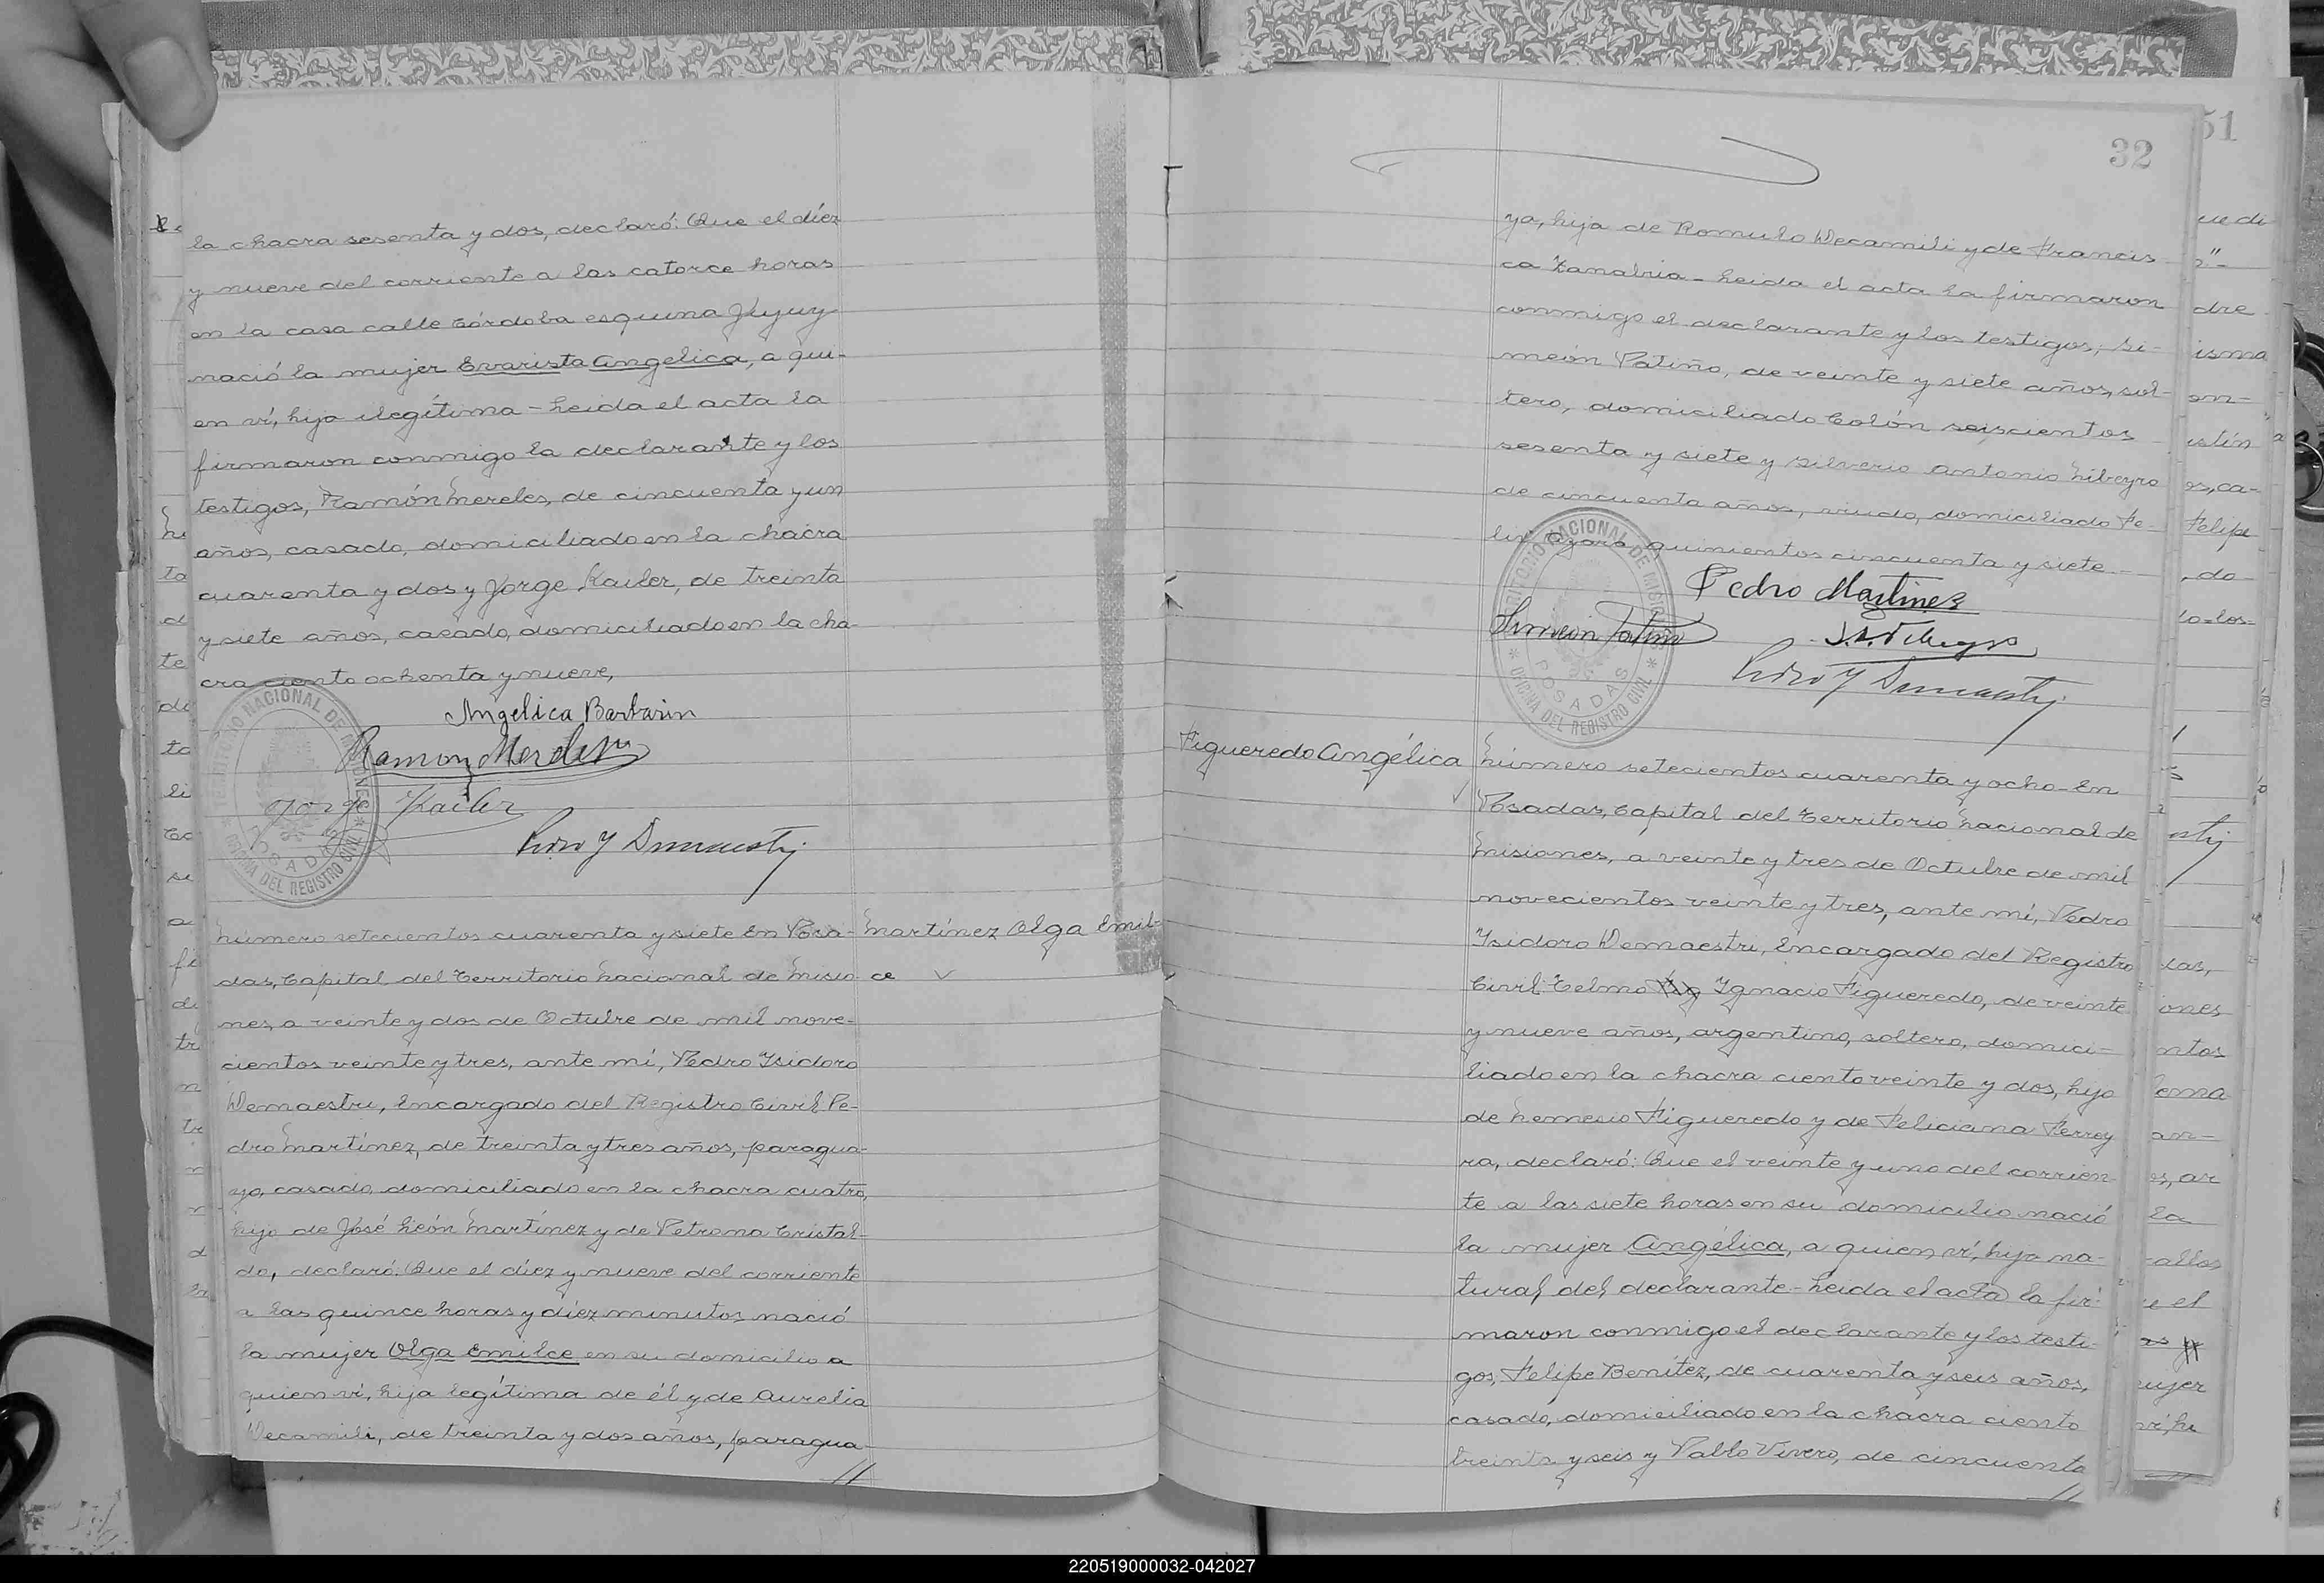 la chacra sesenta y dos, declaró: Que el diez
y nueve del corriente a las catorce horas
en la casa calle Córdoba esquina Jujuy
nació la mujer Evarista Angelica, a qui-
en ví, hija ilegítima - Leida el acta la
firmaron conmigo la declarante y los
testigos, Ramón Mereles, de cincuenta y un
años, casado, domiciliado en la chacra
cuarenta y dos y Jorge Kailer, de treinta
y siete años, casado, domiciliado en la cha-
cra ciento ochenta y nueve,
Angelica Barbarin
Ramon Mereles
Jorge Kailer
Pedro Y Demaestri
TERRITORIO NACIONAL DE MISIONES
POSADAS
OFICINA DEL REGISTRO CIVIL
Martínez Olga Emil-
ce
Número setecientos cuarenta y siete En Posa-
das, Capital del Territorio Nacional de Misio-
nes, a veinte y dos de Octubre de mil nove-
cientos veinte y tres, ante mí, Pedro Isidoro
Demaestri, Encargado del Registro Civil Pe-
dro Martínez, de treinta y tres años, paragua-
yo, casado, domiciliado en la chacra cuatro,
hijo de José León Martínez y de Petrona Cristal-
do, declaró: Que el diez y nueve del corriente
a las quince horas y diez minutos nació
la mujer Olga Emilce en su domicilio a
quien ví, hija legítima de él y de Aurelia
Decamili, de treinta y dos años, paragua-
32
51
ya, hija de Romulo Decamili y de Francis
ca Zanabria - Leida el acta la firmaron
conmigo el declarante y los testigos, Si-
meón Patiño, de veinte y siete años, sol-
tero, domiciliado Colón seiscientos
sesenta y siete y Silverio Antonio Niveyro
de cincuenta años, viudo, domiciliado Fe-
lix Azara quinientos cincuenta y siete -
Pedro Martinez
Simeón Patiño
Pedro Y Demaestri
TERRITORIO NACIONAL DE MISIONES
POSADAS
OFICINA DEL REGISTRO CIVIL
Figueredo Angélica
Número setecientos cuarenta y ocho - En
Posadas, Capital del Territorio Nacional de
Misiones, a veinte y tres de Octubre de mil
novecientos veinte y tres, ante mí, Pedro
Isidoro Demaestri, Encargado del Registro
Civil Telmo Fig Ignacio Figueredo, de veinte
y nueve años, argentino, soltero, domici-
liado en la chacra ciento veinte y dos, hijo
de Nemesio Figueredo y de Feliciana Ferrey
ra, declaró: Que el veinte y uno del corrien
te a las siete horas en su domicilio nació
la mujer Angélica, a quien ví, hija na-
tural del declarante - Leida el acta la fir-
maron conmigo el declarante y los testi-
gos, Felipe Benítez, de cuarenta y seis años,
casado, domiciliado en la chacra ciento
treinta y seis y Pablo Vivero, de cincuenta
220519000032-042027